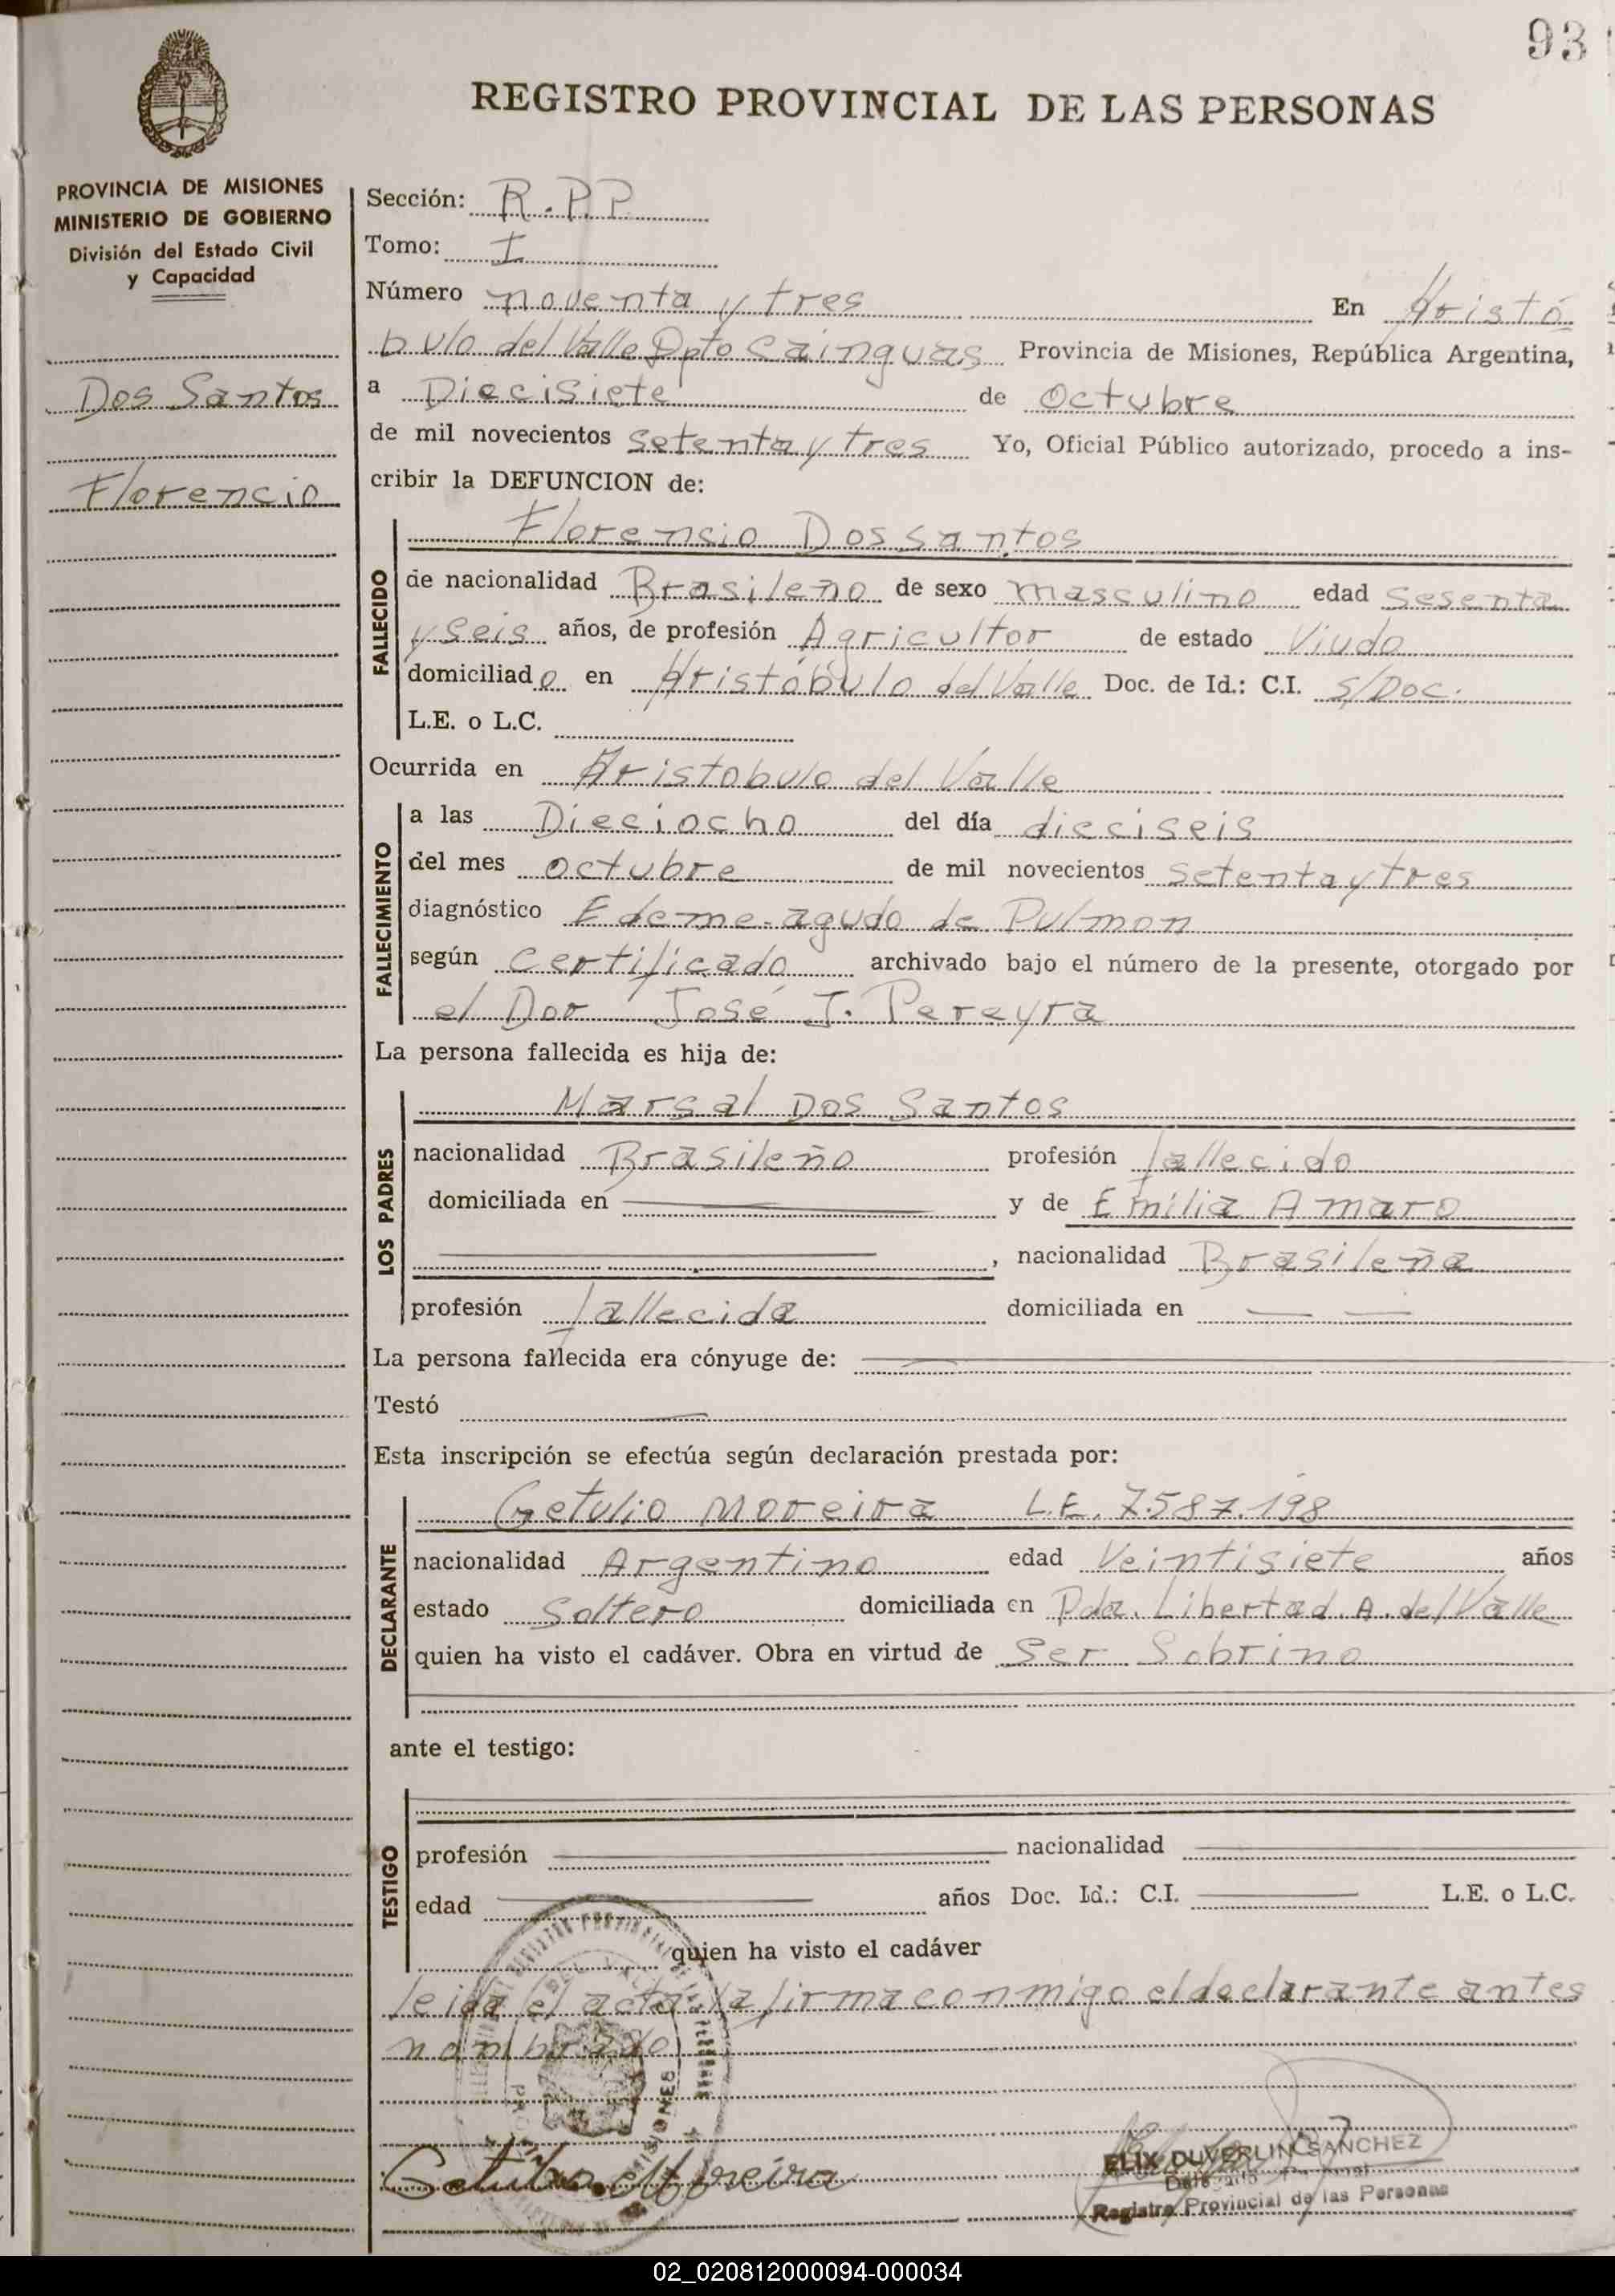 93
REGISTRO PROVINCIAL DE LAS PERSONAS
PROVINCIA DE MISIONES
MINISTERIO DE GOBIERNO
División del Estado Civil
y Capacidad
Dos Santos
Florencio
Sección: R.P.P
Tomo: I
Número noventa y tres En Aristó
bulo del Valle Dpto Cainguas Provincia de Misiones, República Argentina,
a Diecisiete de Octubre
de mil novecientos setenta y tres Yo, Oficial Público autorizado, procedo a ins-
cribir la DEFUNCION de:
Florensio Dos santos
FALLECIDO
de nacionalidad Brasileño de sexo masculino edad Sesenta
y Seis años, de profesión Agricultor de estado Viudo
domiciliado en Aristóbulo del Valle Doc. de Id.: C.I. S/Doc.
L.E. o L.C.
Ocurrida en Aristobulo del Valle
FALLECIMIENTO
a las Dieciocho del día dieciseis
del mes octubre de mil novecientos setenta y tres
diagnóstico Edeme agudo de Pulmon
según Certificado archivado bajo el número de la presente, otorgado por
el Dor José J. Pereyra
La persona fallecida es hija de:
LOS PADRES
Marsal Dos Santos
nacionalidad Brasileño profesión fallecido
domiciliada en y de Emilia Amaro
, nacionalidad Brasileña
profesión fallecida domiciliada en
La persona fallecida era cónyuge de:
Testó
Esta inscripción se efectúa según declaración prestada por:
DECLARANTE
Getulio Moreira L.E. 7.587.198
nacionalidad Argentino edad Veintisiete años
estado Soltero domiciliada en Pda. Libertad. A. del Valle
quien ha visto el cadáver. Obra en virtud de Ser Sobrino
ante el testigo:
TESTIGO
profesión nacionalidad
edad años Doc. Id.: C.I. L.E. o L.C.
quien ha visto el cadáver
leida el acta la firma conmigo el declarante antes
nombrado
Getulio Moreira
FELIX DUVERLIN SANCHEZ
Registro Provincial de las Personas
02_020812000094-000034